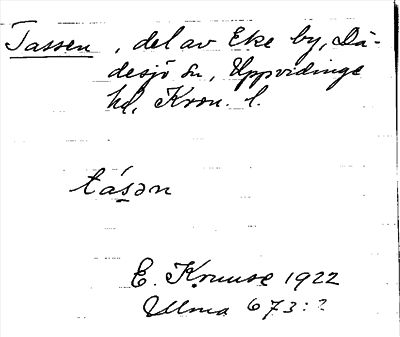 Tassen, del av Eke by, Dä-
desjö sn, Uppvidinge
hd, Kron. l.
tásən
E. Kruuse 1922
Ulma 673:2